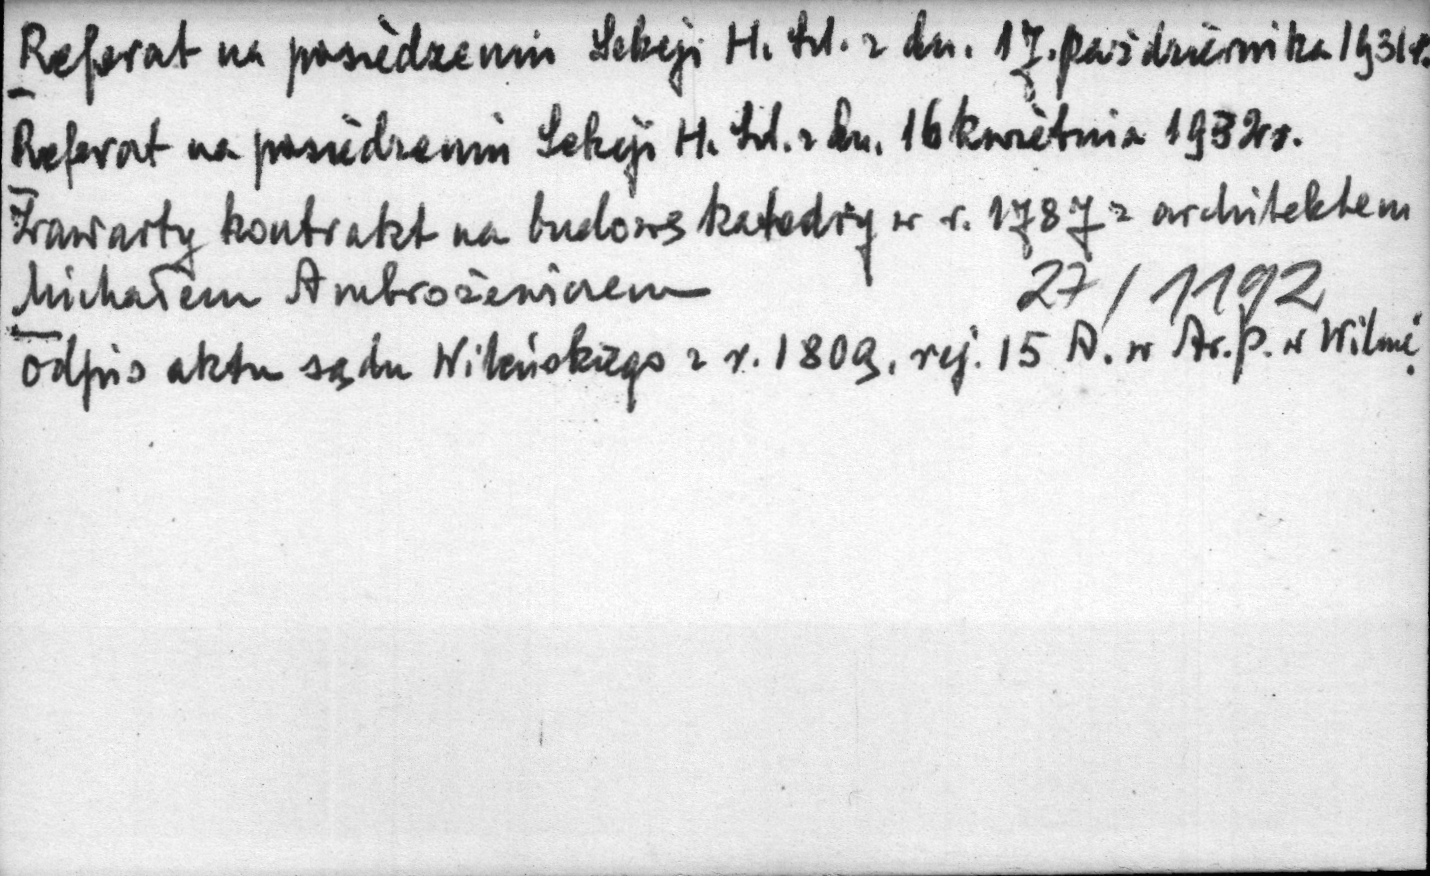 Referat na posiedzeniu Sekcji H. Szt. z dn. 17. października 1931 r.
Referat na posiedzeniu Sekcji H. Szt. z dn. 16 kwietnia 1932 r.
Zawarty kontrakt na budowę katedry w r. 1787 z architektem
Michałem Ambrożewiczem 27/1192
Odpis aktu sądu Wileńskiego z r. 1809, rej. 15 A. w Ar. P. w Wilnie.